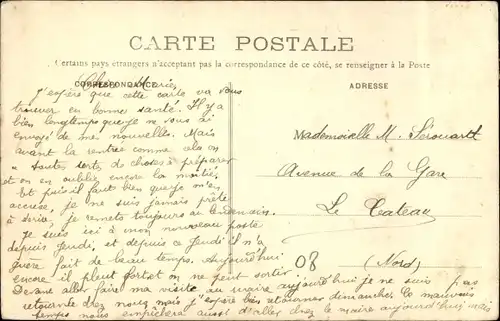 CARTE POSTALE
Certains pays étrangers n'acceptant pas la correspondance de ce côté, se renseigner à la Poste
CORRESPONDANCE
ADRESSE
Chère Marie,
J'espère que cette carte va vous
trouver en bonne santé. Il y a
bien longtemps que je ne vous ai
envoyé de mes nouvelles. Mais
avant la rentrée comme cela on
a toutes sortes de choses à préparer
et on en oublie encore la moitié,
Et puis il faut bien que je m'en
accuse, je ne suis jamais prête
à écrire, je remets toujours au lendemain.
Je suis ici à mon nouveau poste
depuis jeudi, et depuis ce jeudi il n'a
guère fait de beau temps. Aujourd'hui
encore il pleut on ne peut sortir
Devant aller faire ma visite au maire aujourd'hui je ne suis pas
retournée chez nous mais j'espère bien retourner dimanche. Ce mauvais
temps nous empêchera aussi d'aller chez le maire aujourd'hui mais
Mademoiselle M.
Avenue de la Gare
Le Cateau
(Nord)
08